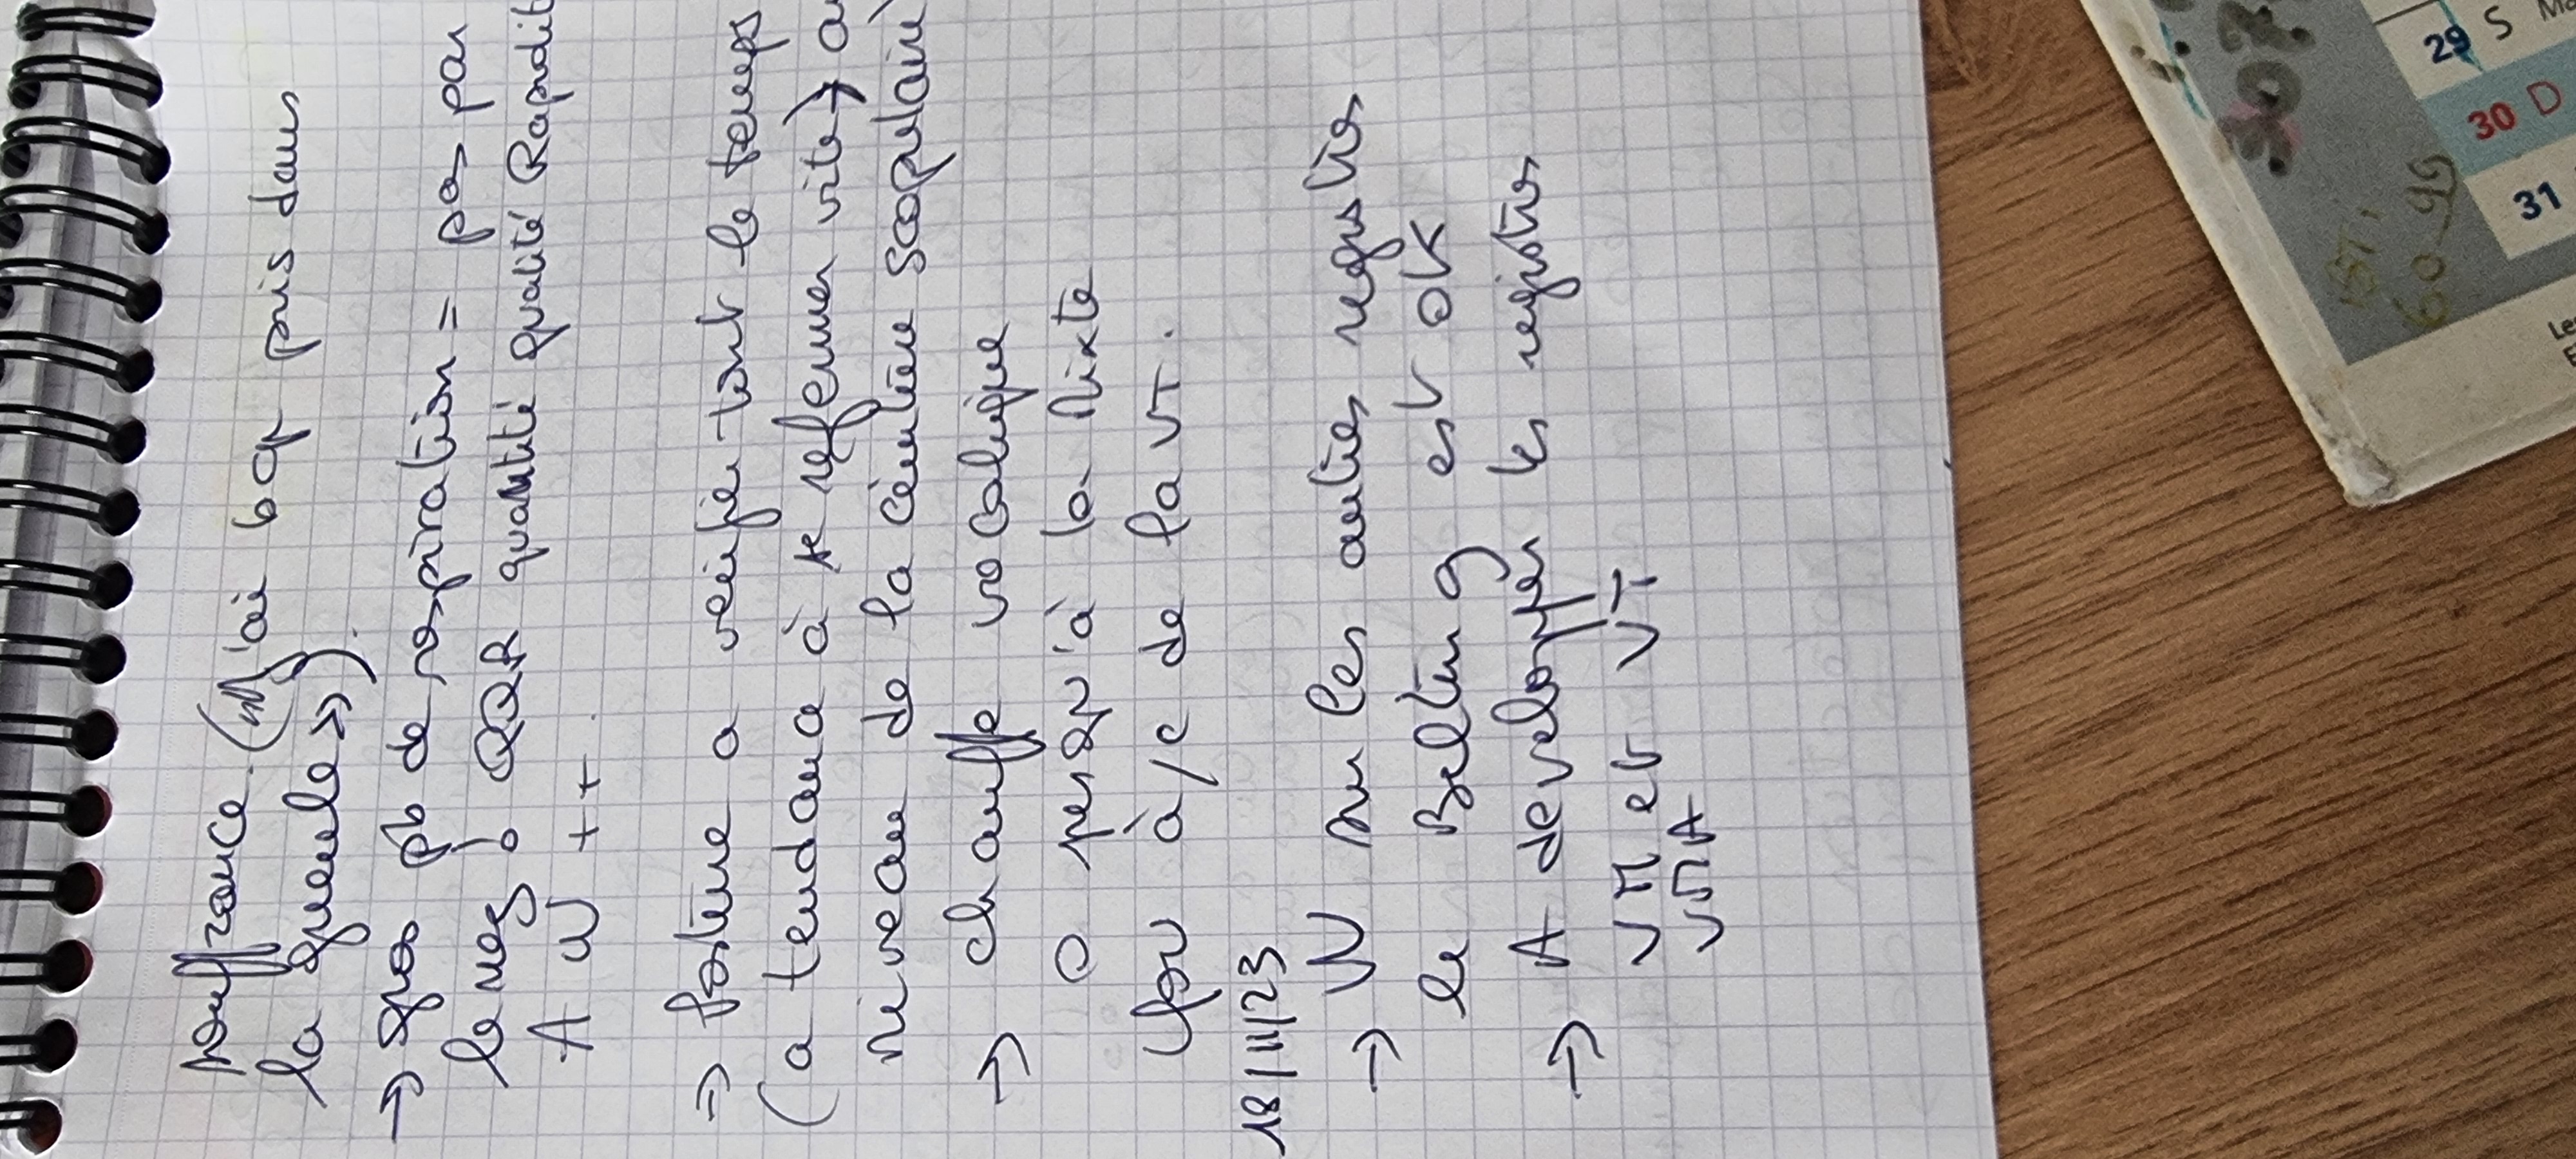 souffrance. (M'ai bcp pris dans
la gueule »).
→ gros pb de respiration = pas par
le nez ! QQR quantité qualité Rapidit
A W ++.
→ Posture a vérifier tout le temps
(a tendance à se refermer vite) → au
niveau de la ceinture scapulaire
→ chauffe vocalique
O jusqu'à la Mixte
You à/c de la VT.
18/11/23
→ W sur les autres registres
le Belting est OK
→ A developper les registres
VM et VT
VMA
29 S Ma
30 D
31
60 45
Le